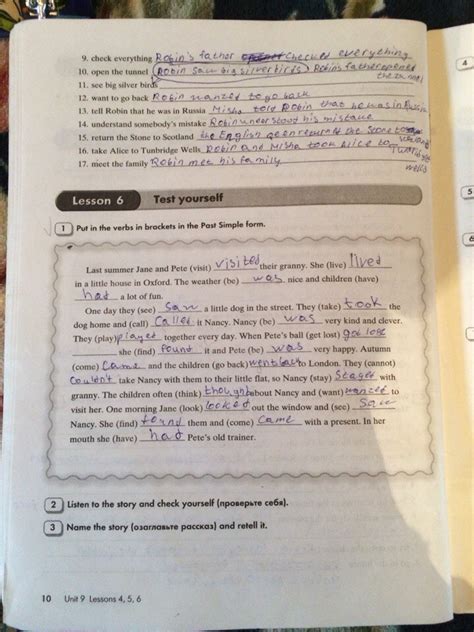 9. check everything Robin's father checked everything
10. open the tunnel (Robin saw big silver birds) Robin's father opened the tunnel
11. see big silver birds
12. want to go back Robin wanted to go back
13. tell Robin that he was in Russia Misha told Robin that he was in Russia
14. understand somebody's mistake Robin understood his mistake
15. return the Stone to Scotland the English qeen returned the Stone to
16. take Alice to Tunbridge Wells Robin and Misha took Alice to
17. meet the family Robin met his family wells
Lesson 6 Test yourself
1 Put in the verbs in brackets in the Past Simple form.
Last summer Jane and Pete (visit) visited their granny. She (live) lived
in a little house in Oxford. The weather (be) was nice and children (have)
had a lot of fun.
One day they (see) saw a little dog in the street. They (take) took the
dog home and (call) Called it Nancy. Nancy (be) was very kind and clever.
They (play) played together every day. When Pete's ball (get lost) got lost
she (find) found it and Pete (be) was very happy. Autumn
(come) Came and the children (go back) went back to London. They (cannot)
Couldn't take Nancy with them to their little flat, so Nancy (stay) Stayed with
granny. The children often (think) thought about Nancy and (want) wanted to
visit her. One morning Jane (look) looked out the window and (see) Saw
Nancy. She (find) found them and (come) Came with a present. In her
mouth she (have) had Pete's old trainer.
2 Listen to the story and check yourself (проверьте себя).
3 Name the story (озаглавьте рассказ) and retell it.
10 Unit 9 Lessons 4, 5, 6
4
5
6